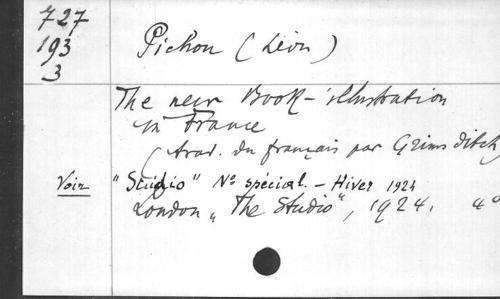 727
193
3
Pichon (Léon)
The new Book-illustration
in France
(trad. du français par Grimsditch
Voir "Studio" No spécial. - Hiver 1924
London, "The Studio", 1924. 4°